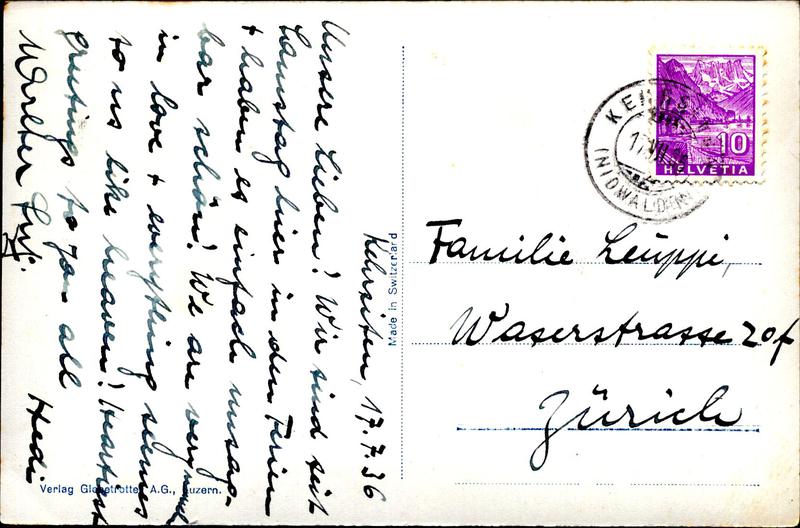 Kehrsiten, 17.7.36
Unsere Lieben! Wir sind seit
Samstag hier in den Ferien
+ haben es einfach unsag-
bar schön! We are very much
in love + everything seemes
to us like heaven! Heartiest
greetings to you all
Walter Hedi
Made in Switzerland
Verlag Globetrotter A.G., Luzern.
KEHRSITEN
17.VII.36
(NIDWALDEN)
10
HELVETIA
Familie Leuppi,
Waserstrasse 20f
Zürich